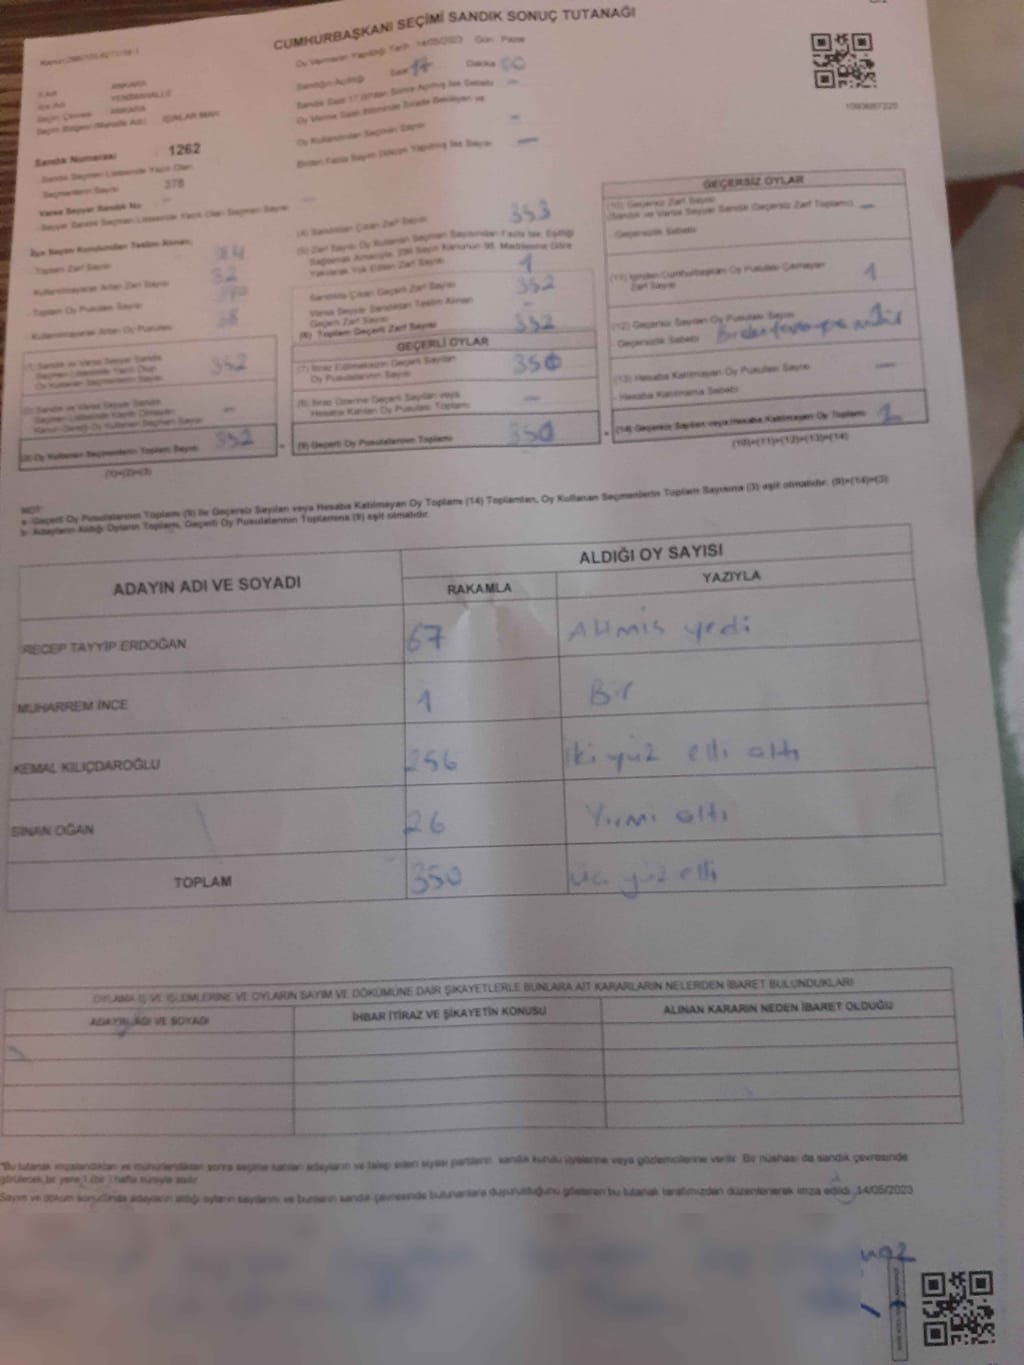 CUMHURBAŞKANI SEÇİMİ SANDIK SONUÇ TUTANAĞI
Oy Vermenin Yapıldığı Tarih 14/05/2023 Gün Pazar
Sandığın Açıldığı Saat 17 Dakika 00
Oy Verme Saati Bitiminde Sırada Bekleyen ve
Oy Kullandırılan Seçmen Sayısı -
Birden Fazla Sayım Döküm Yapılmış İse Sayısı -
ANKARA
YENİMAHALLE
ANKARA
IŞINLAR MAH.
1093687220
Sandık Numarası 1262
Sandık Seçmen Listesinde Yazılı Olan
Seçmenlerin Sayısı 378
Varsa Seyyar Sandık No -
Seyyar Sandık Seçmen Listesinde Yazılı Olan Seçmen Sayısı -
İlçe Seçim Kurulundan Teslim Alınan;
Toplam Zarf Sayısı
Kullanılmayarak Artan Zarf Sayısı 32
Toplam Oy Pusulası Sayısı
Kullanılmayarak Artan Oy Pusulası 38
(1) Sandık ve Varsa Seyyar Sandık
Seçmen Listesinde Yazılı Olup
Oy Kullanan Seçmenlerin Sayısı 352
(2) Sandık ve Varsa Seyyar Sandık
Seçmen Listesinde Kayıtlı Olmayan
Kanun Gereği Oy Kullanan Seçmen Sayısı -
(3) Oy Kullanan Seçmenlerin Toplam Sayısı 352
(1)+(2)=(3)
(4) Sandıktan Çıkan Zarf Sayısı 353
(5) Zarf Sayısı Oy Kullanan Seçmen Sayısından Fazla İse, Eşitliği
Sağlamak Amacıyla, 298 Sayılı Kanunun 98. Maddesine Göre
Yakılarak Yok Edilen Zarf Sayısı 1
Sandıkta Çıkan Geçerli Zarf Sayısı 352
Varsa Seyyar Sandıktan Teslim Alınan
Geçerli Zarf Sayısı -
(6) Toplam Geçerli Zarf Sayısı 352
GEÇERLİ OYLAR
(7) İtiraz Edilmeksizin Geçerli Sayılan
Oy Pusulalarının Sayısı 350
(8) İtiraz Üzerine Geçerli Sayılan veya
Hesaba Katılan Oy Pusulası Toplamı -
(9) Geçerli Oy Pusulalarının Toplamı 350
GEÇERSİZ OYLAR
(10) Geçersiz Zarf Sayısı
(Sandık ve Varsa Seyyar Sandık Geçersiz Zarf Toplamı) -
- Geçersizlik Sebebi
(11) İçinden Cumhurbaşkanı Oy Pusulası Çıkmayan
Zarf Sayısı 1
(12) Geçersiz Sayılan Oy Pusulası Sayısı 1
Geçersizlik Sebebi
(13) Hesaba Katılmayan Oy Pusulası Sayısı -
- Hesaba Katılmama Sebebi
(14) Geçersiz Sayılan veya Hesaba Katılmayan Oy Toplamı 2
(10)+(11)+(12)+(13)=(14)
NOT:
a- Geçerli Oy Pusulalarının Toplamı (9) ile Geçersiz Sayılan veya Hesaba Katılmayan Oy Toplamı (14) Toplamları, Oy Kullanan Seçmenlerin Toplam Sayısına (3) eşit olmalıdır. (9)+(14)=(3)
b- Adayların Aldığı Oyların Toplamı, Geçerli Oy Pusulalarının Toplamına (9) eşit olmalıdır.
ADAYIN ADI VE SOYADI
ALDIĞI OY SAYISI
RAKAMLA YAZIYLA
RECEP TAYYİP ERDOĞAN 67 Altmış yedi
MUHARREM İNCE 1 Bir
KEMAL KILIÇDAROĞLU 256 İki yüz elli altı
SİNAN OĞAN 26 Yirmi altı
TOPLAM 350 üç yüz elli
OYLAMA İŞ VE İŞLEMLERİNE VE OYLARIN SAYIM VE DÖKÜMÜNE DAİR ŞİKAYETLERLE BUNLARA AİT KARARLARIN NELERDEN İBARET BULUNDUKLARI
ADAYIN ADI VE SOYADI İHBAR İTİRAZ VE ŞİKAYETİN KONUSU ALINAN KARARIN NEDEN İBARET OLDUĞU
*Bu tutanak imzalandıktan ve mühürlendikten sonra seçime katılan adayların ve talep eden siyasi partilerin sandık kurulu üyelerine veya gözlemcilerine verilir. Bir nüshası da sandık çevresinde
görülecek bir yere 1 (bir) hafta süreyle asılır.
Sayım ve döküm sonucunda adayların aldığı oyların sayılarını ve bunların sandık çevresinde bulunanlara duyurulduğunu gösteren bu tutanak tarafımızdan düzenlenerek imza edildi. 14/05/2023